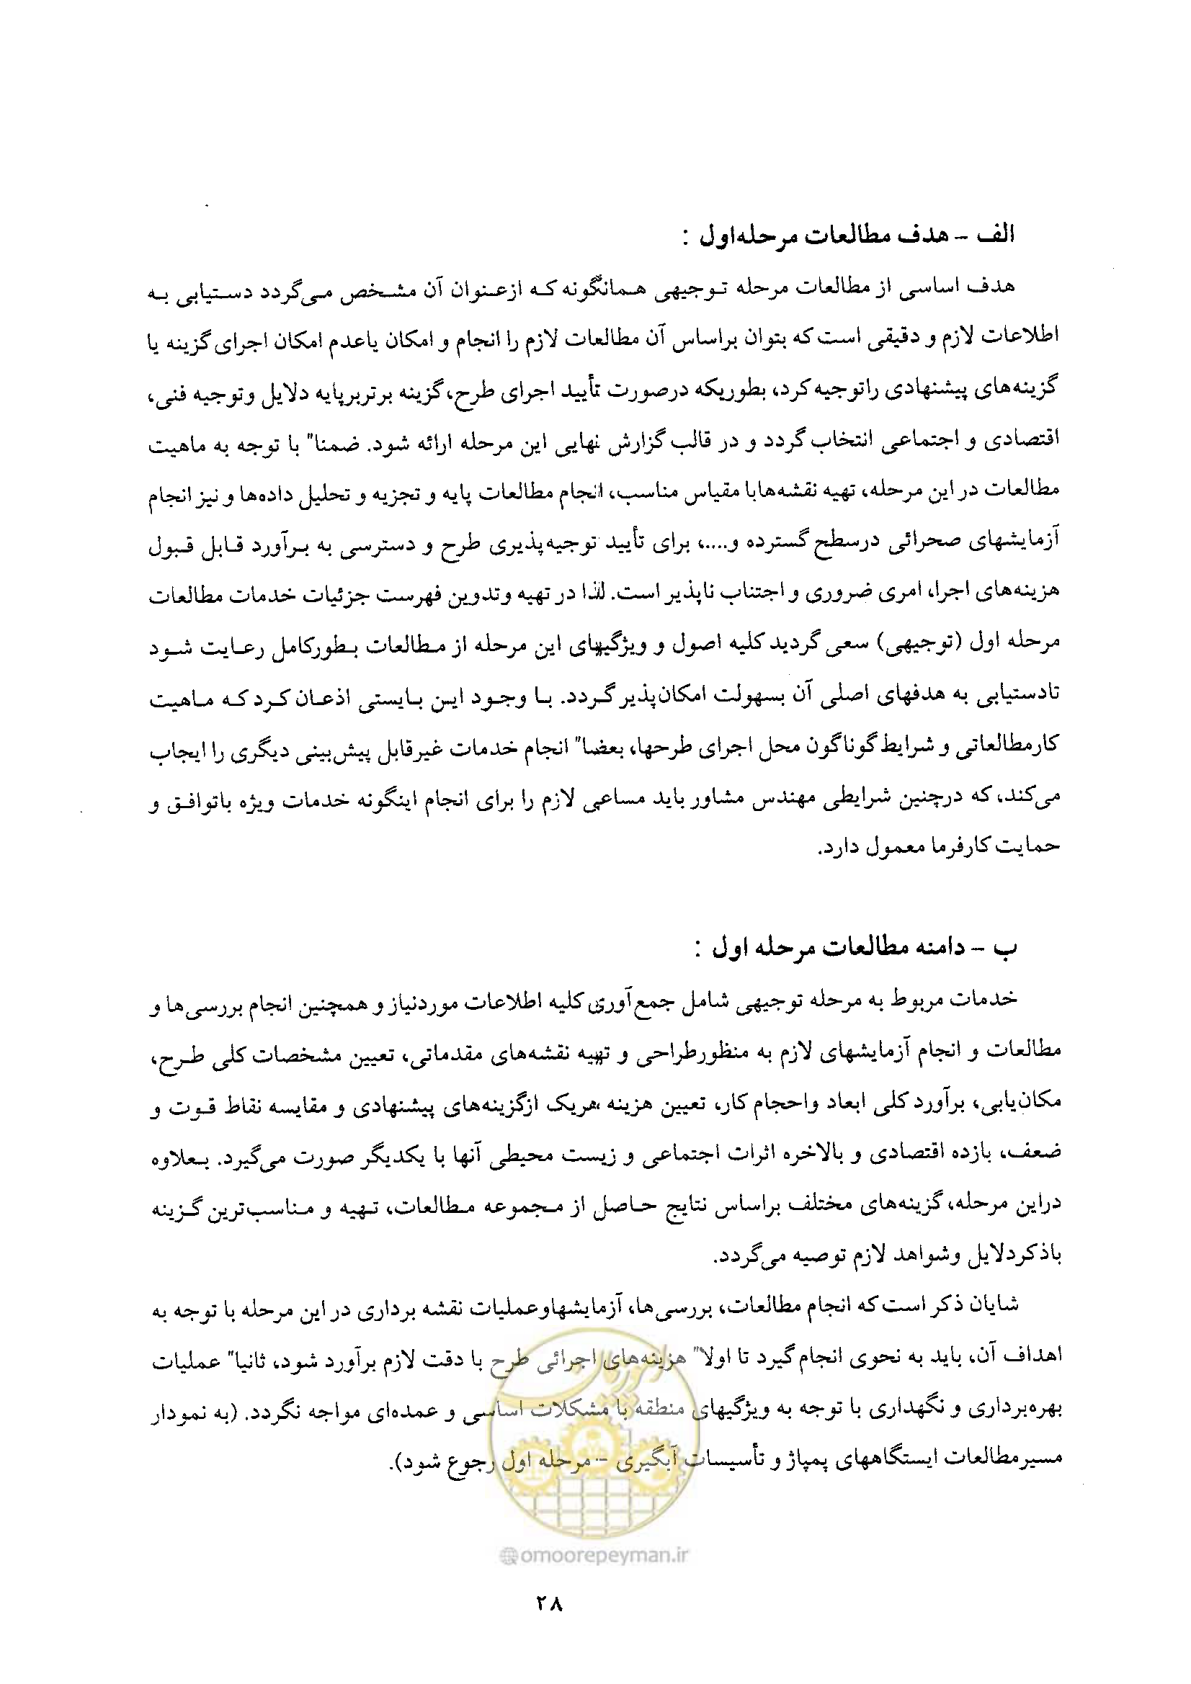 الف – هدف مطالعات مرحله‌اول :
هدف اساسی از مطالعات مرحله توجیهی همانگونه که ازعنوان آن مشخص می‌گردد دستیابی به
اطلاعات لازم و دقیقی است که بتوان براساس آن مطالعات لازم را انجام و امکان یاعدم امکان اجرای گزینه یا
گزینه‌های پیشنهادی راتوجیه کرد، بطوریکه درصورت تأیید اجرای طرح، گزینه برتربرپایه دلایل وتوجیه فنی،
اقتصادی و اجتماعی انتخاب گردد و در قالب گزارش نهایی این مرحله ارائه شود. ضمنا" با توجه به ماهیت
مطالعات در این مرحله، تهیه نقشه‌هابا مقیاس مناسب، انجام مطالعات پایه و تجزیه و تحلیل داده‌ها و نیز انجام
آزمایشهای صحرائی درسطح گسترده و....، برای تأیید توجیه‌پذیری طرح و دسترسی به برآورد قابل قبول
هزینه‌های اجرا، امری ضروری و اجتناب ناپذیر است. لذا در تهیه وتدوین فهرست جزئیات خدمات مطالعات
مرحله اول (توجیهی) سعی گردید کلیه اصول و ویژگیهای این مرحله از مطالعات بطورکامل رعایت شود
تادستیابی به هدفهای اصلی آن بسهولت امکان‌پذیر گردد. با وجود این بایستی اذعان کرد که ماهیت
کارمطالعاتی و شرایط گوناگون محل اجرای طرحها، بعضا" انجام خدمات غیرقابل پیش‌بینی دیگری را ایجاب
می‌کند، که درچنین شرایطی مهندس مشاور باید مساعی لازم را برای انجام اینگونه خدمات ویژه باتوافق و
حمایت کارفرما معمول دارد.
ب – دامنه مطالعات مرحله اول :
خدمات مربوط به مرحله توجیهی شامل جمع‌آوری کلیه اطلاعات موردنیاز و همچنین انجام بررسی‌ها و
مطالعات و انجام آزمایشهای لازم به منظورطراحی و تهیه نقشه‌های مقدماتی، تعیین مشخصات کلی طرح،
مکان‌یابی، برآورد کلی ابعاد واحجام کار، تعیین هزینه هریک ازگزینه‌های پیشنهادی و مقایسه نقاط قوت و
ضعف، بازده اقتصادی و بالاخره اثرات اجتماعی و زیست محیطی آنها با یکدیگر صورت می‌گیرد. بعلاوه
دراین مرحله، گزینه‌های مختلف براساس نتایج حاصل از مجموعه مطالعات، تهیه و مناسب‌ترین گزینه
باذکردلایل وشواهد لازم توصیه می‌گردد.
شایان ذکر است که انجام مطالعات، بررسی‌ها، آزمایشهاوعملیات نقشه برداری در این مرحله با توجه به
اهداف آن، باید به نحوی انجام گیرد تا اولا" هزینه‌های اجرائی طرح با دقت لازم برآورد شود، ثانیا" عملیات
بهره‌برداری و نگهداری با توجه به ویژگیهای منطقه با مشکلات اساسی و عمده‌ای مواجه نگردد. (به نمودار
مسیرمطالعات ایستگاههای پمپاژ و تأسیسات آبگیری – مرحله اول رجوع شود).
omoorepeyman.ir
۲۸